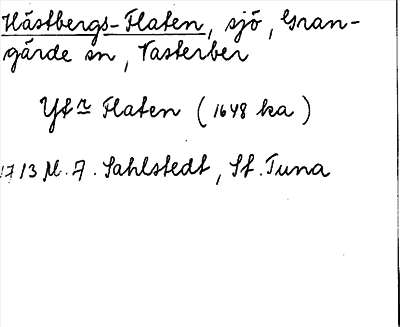 Hästbergs-Flaten, sjö, Gran-
gärde sn, Vasterber
Yt r Flaten (1648 ka)
1713 M. A. Sahlstedt, St. Tuna